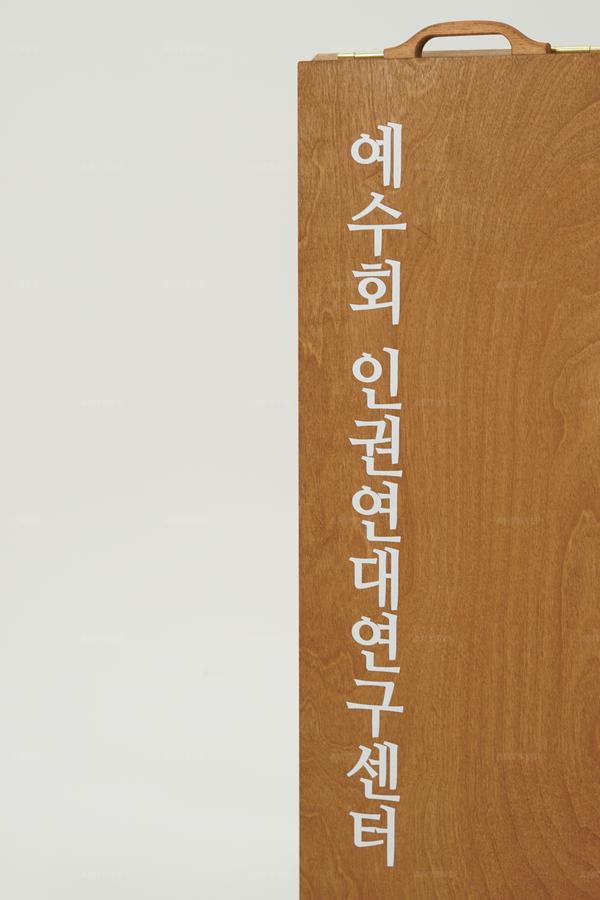 예수회 인권연대연구센터